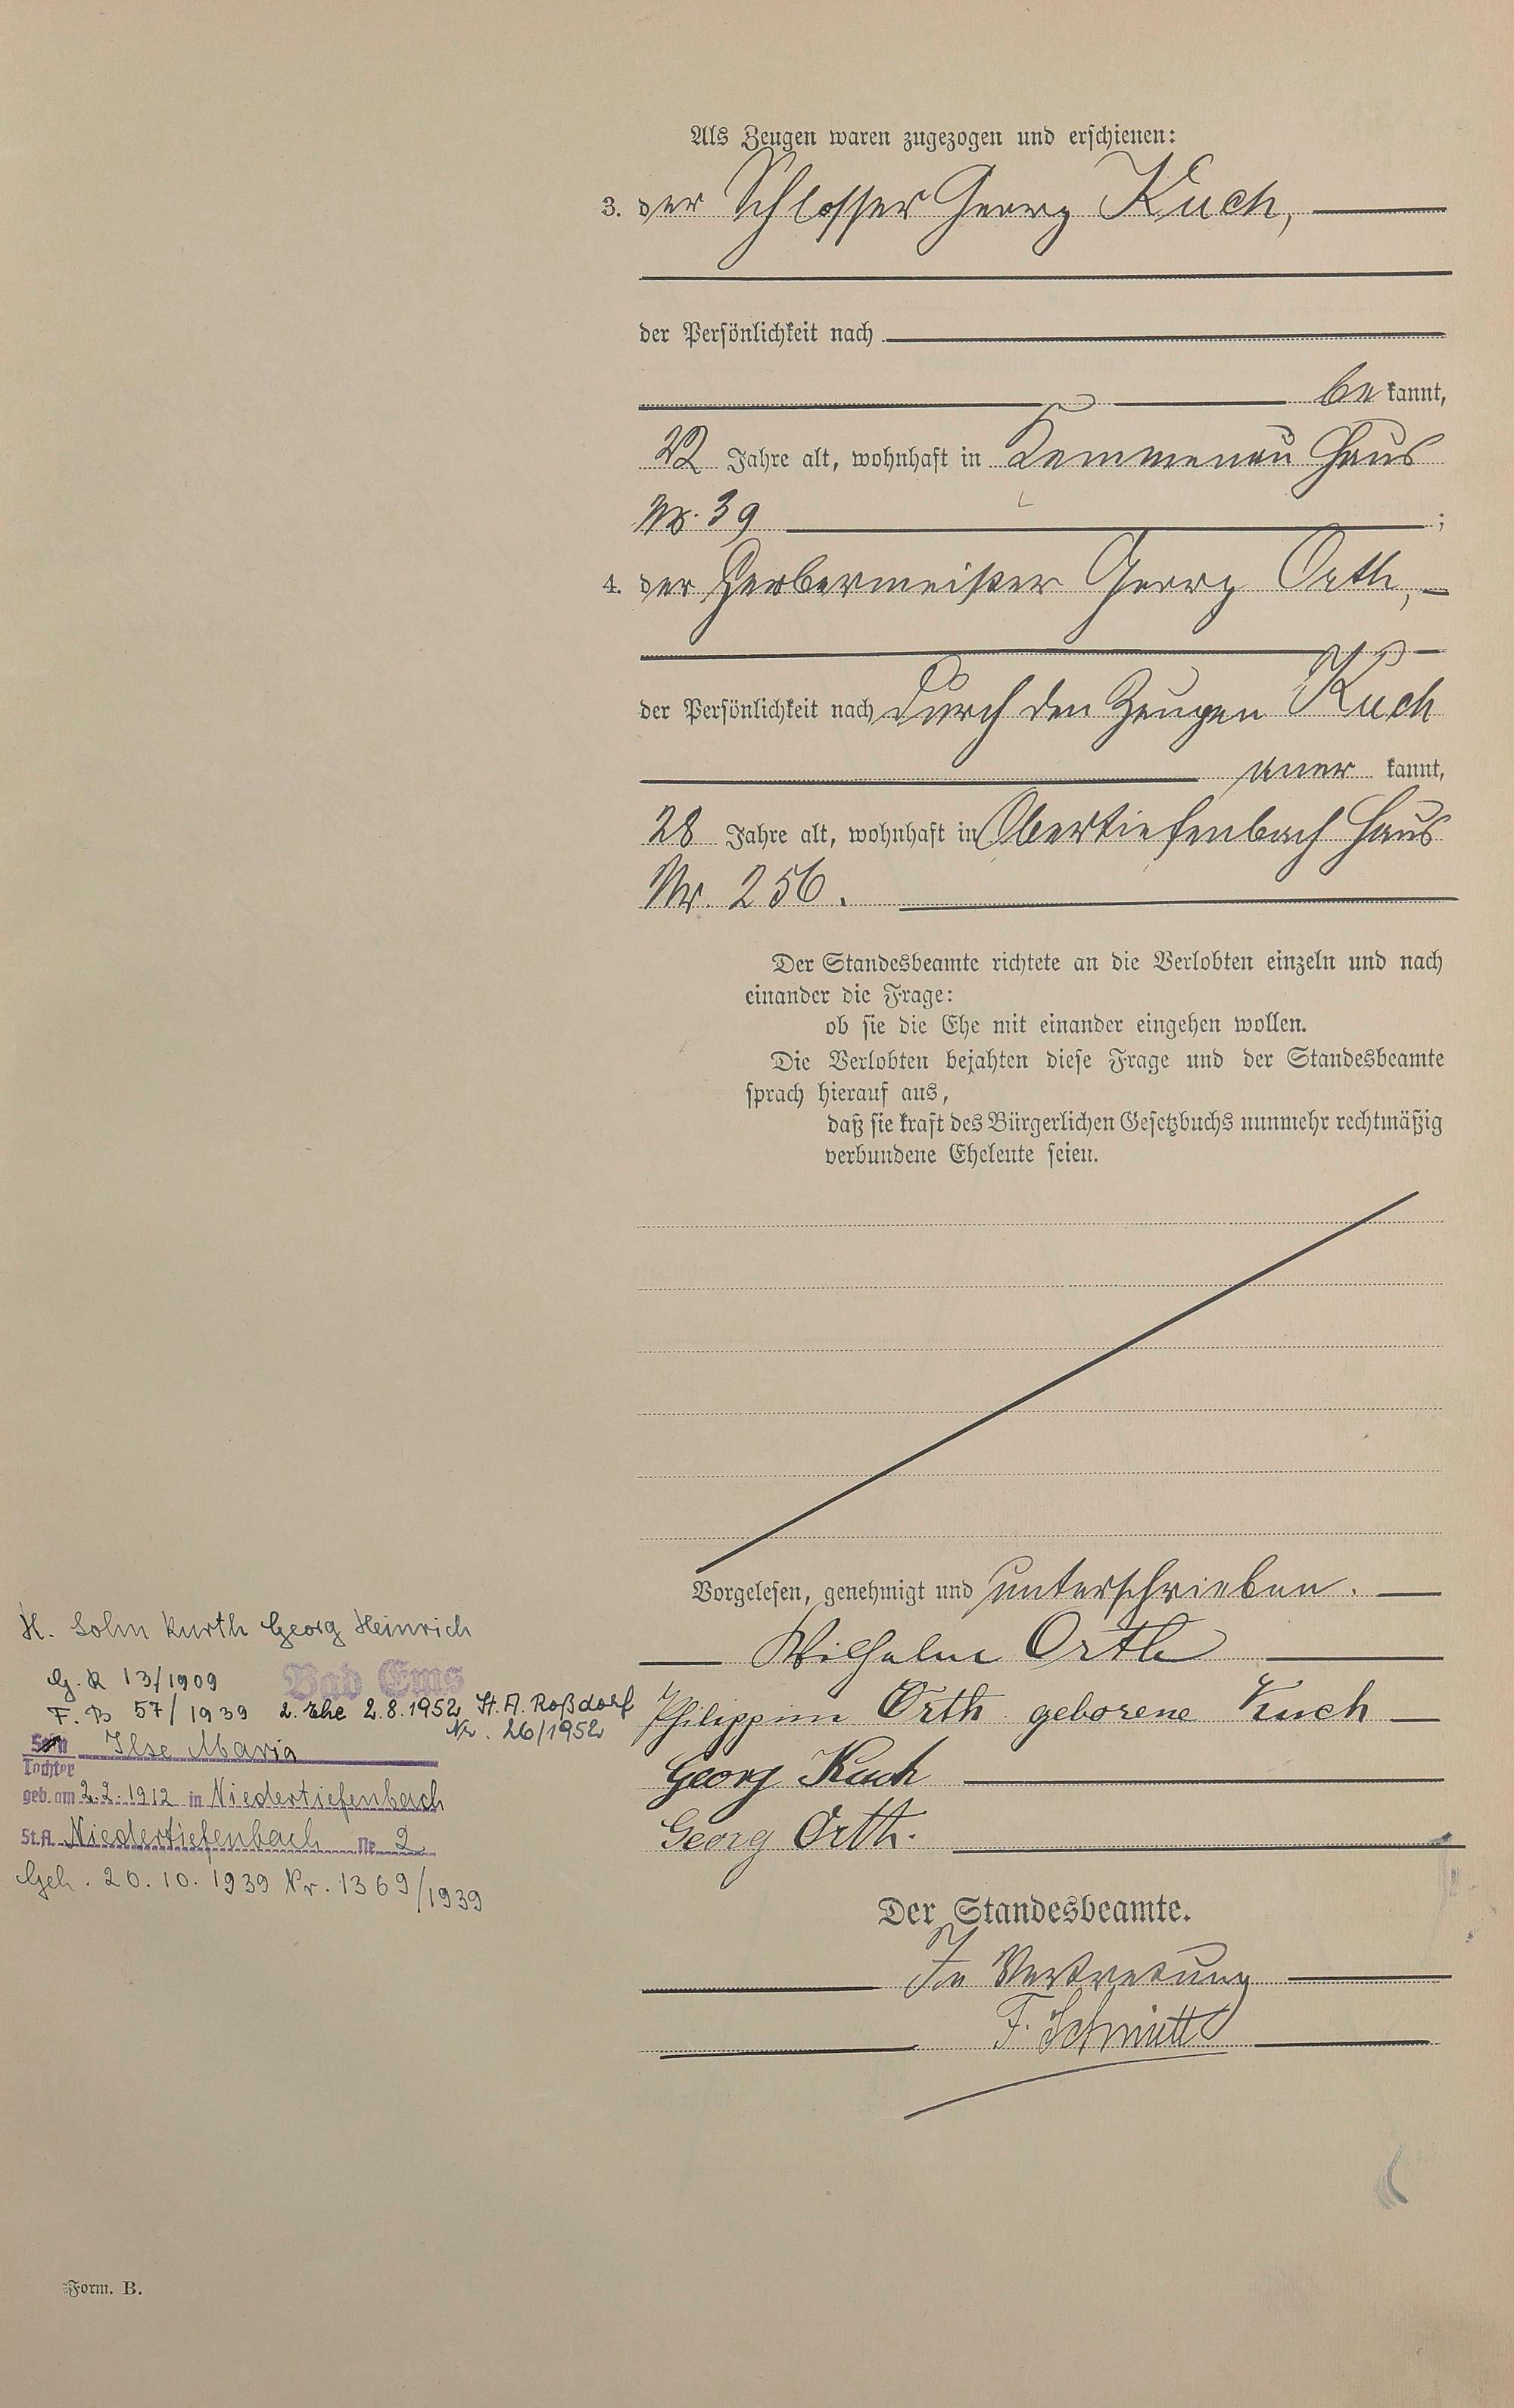 Als Zeugen waren zugezogen und erschienen:
3. der Schlosser Georg Kuch,
der Persönlichkeit nach
be kannt,
22 Jahre alt, wohnhaft in Kemmenau Haus
Nr. 39 ;
4. der Gerbermeister Georg Orth,
der Persönlichkeit nach durch den Zeugen Kuch
aner kannt,
28 Jahre alt, wohnhaft in Obertiefenbach Haus
Nr. 256.
Der Standesbeamte richtete an die Verlobten einzeln und nach
einander die Frage:
ob sie die Ehe mit einander eingehen wollen.
Die Verlobten bejahten diese Frage und der Standesbeamte
sprach hierauf aus,
daß sie kraft des Bürgerlichen Gesetzbuchs nunmehr rechtmäßig
verbundene Eheleute seien.
Vorgelesen, genehmigt und unterschrieben.
Wilhelm Orth
Philippine Orth geborene Kuch
Georg Kuch
Georg Orth.
Der Standesbeamte.
In Vertretung
F. Schmitt
H. Sohn Kurth Georg Heinrich
G. R 13/1909 Bad Ems
F. B 57/1939 2. Ehe 2.8.1952 St. A. Roßdorf
Nr. 26/1952
Sohn
Tochter Ilse Maria
geb. am 2.2.1912 in Niedertiefenbach
St.A. Niedertiefenbach Nr. 2
Geh. 20.10.1939 Nr. 1369/1939
Form. B.